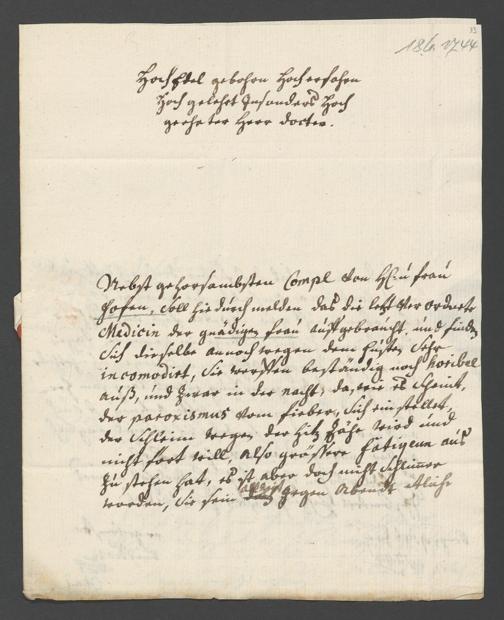 18/6 1744
HochEdel gebohrn Hocherfahrn
Hoch gelehrt Insonders Hoch
geehrter Herr docter.
Nebst gehorsambsten Compl von H: u frau
hofen, soll hiedurch melden das die letzt verordnete
Medicin der gnädigen frau auffgebraucht, und finden
sich dieselbe annoch wegen dem husten sehr
incomodiret, Sie werffen beständig noch
auß, und zwar in der nacht, da, wie es scheint,
der paroxismus vom fieber, sich einstellet,
der Schleim wegen der hitz zähe wird und
nicht fort will, also grössere fatiguen auß
zu stehen hat, es ist aber doch nicht schlimer
worden, Sie sein gegen Abendt etliche